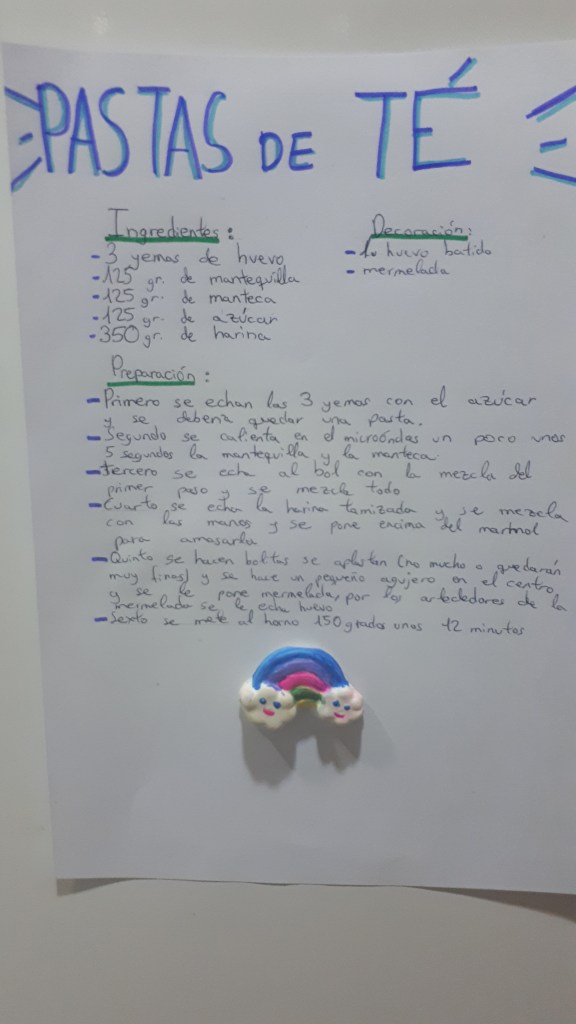 PASTAS DE TÉ
Ingredientes:
- 3 yemas de huevo
- 125 gr. de mantequilla
- 125 gr. de manteca
- 125 gr. de azúcar
- 350 gr. de harina
Decoración:
- 1 huevo batido
- mermelada
Preparación:
- Primero se echan las 3 yemas con el azúcar
y se debería quedar una pasta.
- Segundo se calienta en el microondas un poco unos
5 segundos la mantequilla y la manteca.
- Tercero se echa al bol con la mezcla del
primer paso y se mezcla todo
- Cuarto se echa la harina tamizada y se mezcla
con las manos y se pone encima del marmol
para amasarla
- Quinto se hacen bolitas se aplastan (no mucho o quedarán
muy finos) y se hace un pequeño agujero en el centro
y se le pone mermelada, por los de la
se le echa huevo
- Sexto se mete al horno 150 grados unos 12 minutos